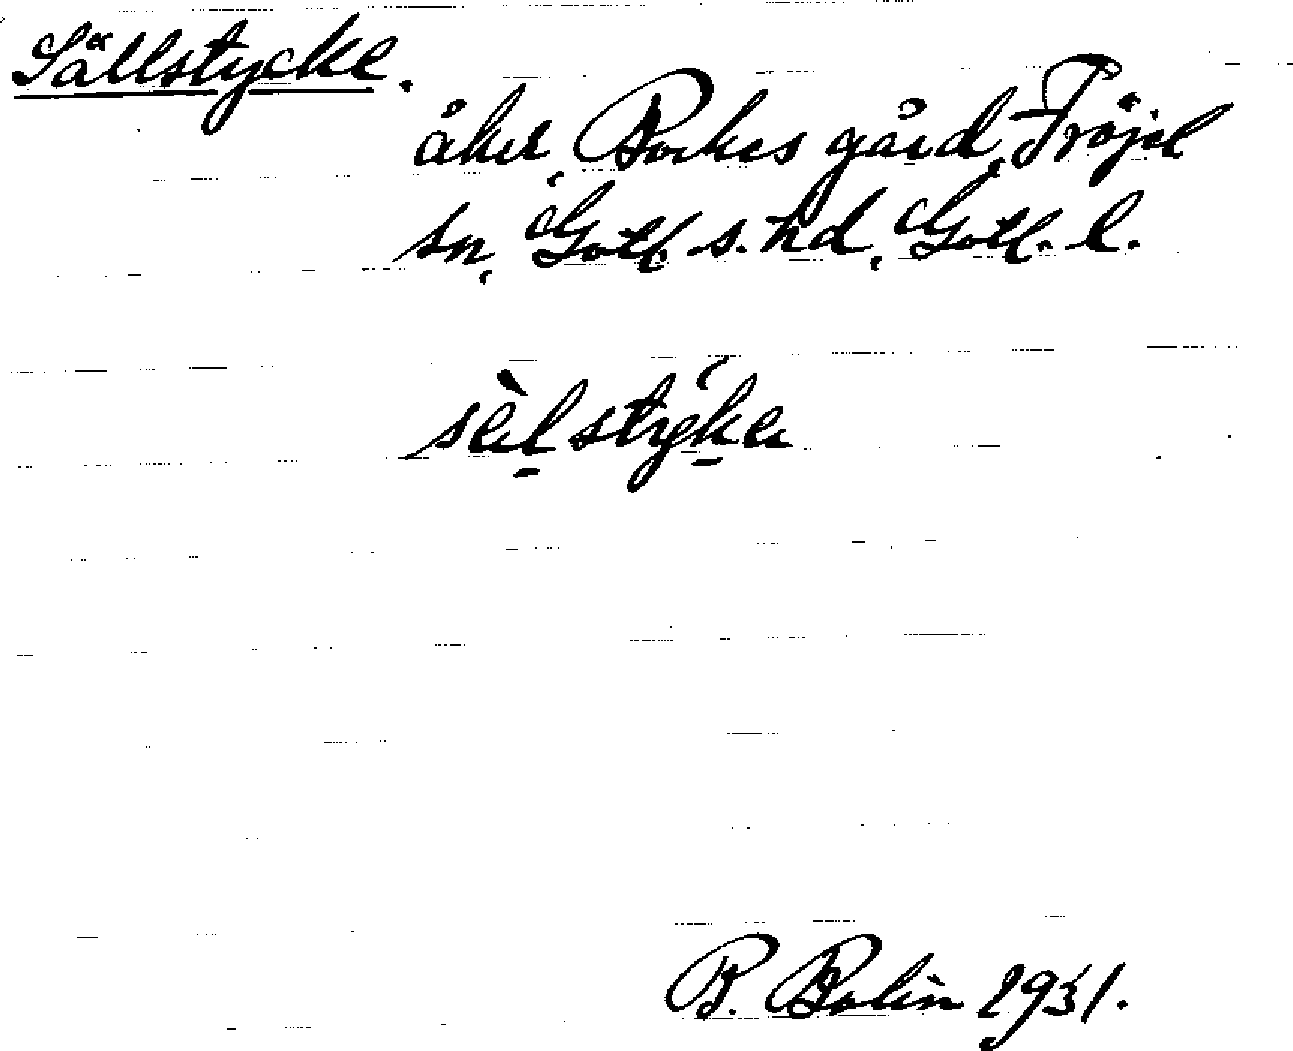 Sällstycke.
åker, Bockes gård, Fröjel
sn, Gotl. s. hd, Gotl. l.
sèlstyka
B. Bolin 1931.